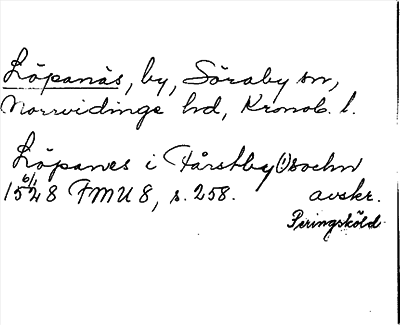 Löpanäs, by, Söraby sn,
Norrvidinge hd, Kronob. l.
Löpanes i Tårstby(!)sochn
6/1
1528 FMU 8, s. 258. avskr.
Peringsköld